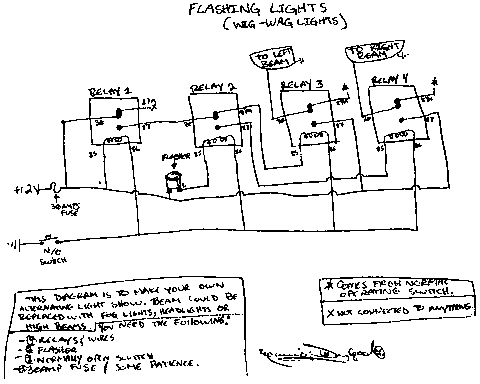 FLASHING LIGHTS
(WIG-WAG LIGHTS)
TO LEFT
BEAM
TO RIGHT
BEAM
RELAY 1
RELAY 2
RELAY 3
RELAY 4
30
87
85
86
30
87
85
86
30
87
85
86
30
87
85
86
FLASHER
+12V
30 AMPS
FUSE
N/O
SWITCH
THIS DIAGRAM IS TO MAKE YOUR OWN
ALTERNATIVE LIGHT SHOW. BEAM COULD BE
REPLACED WITH FOG LIGHTS, HEADLIGHTS OR
HIGH BEAMS. YOU NEED THE FOLLOWING:
RELAYS / WIRES
FLASHER
NORMALLY OPEN SWITCH
30AMP FUSE / SOME PATIENCE.
* COMES FROM NORMAL
OPERATING SWITCH.
X NOT CONNECTED TO ANYTHING